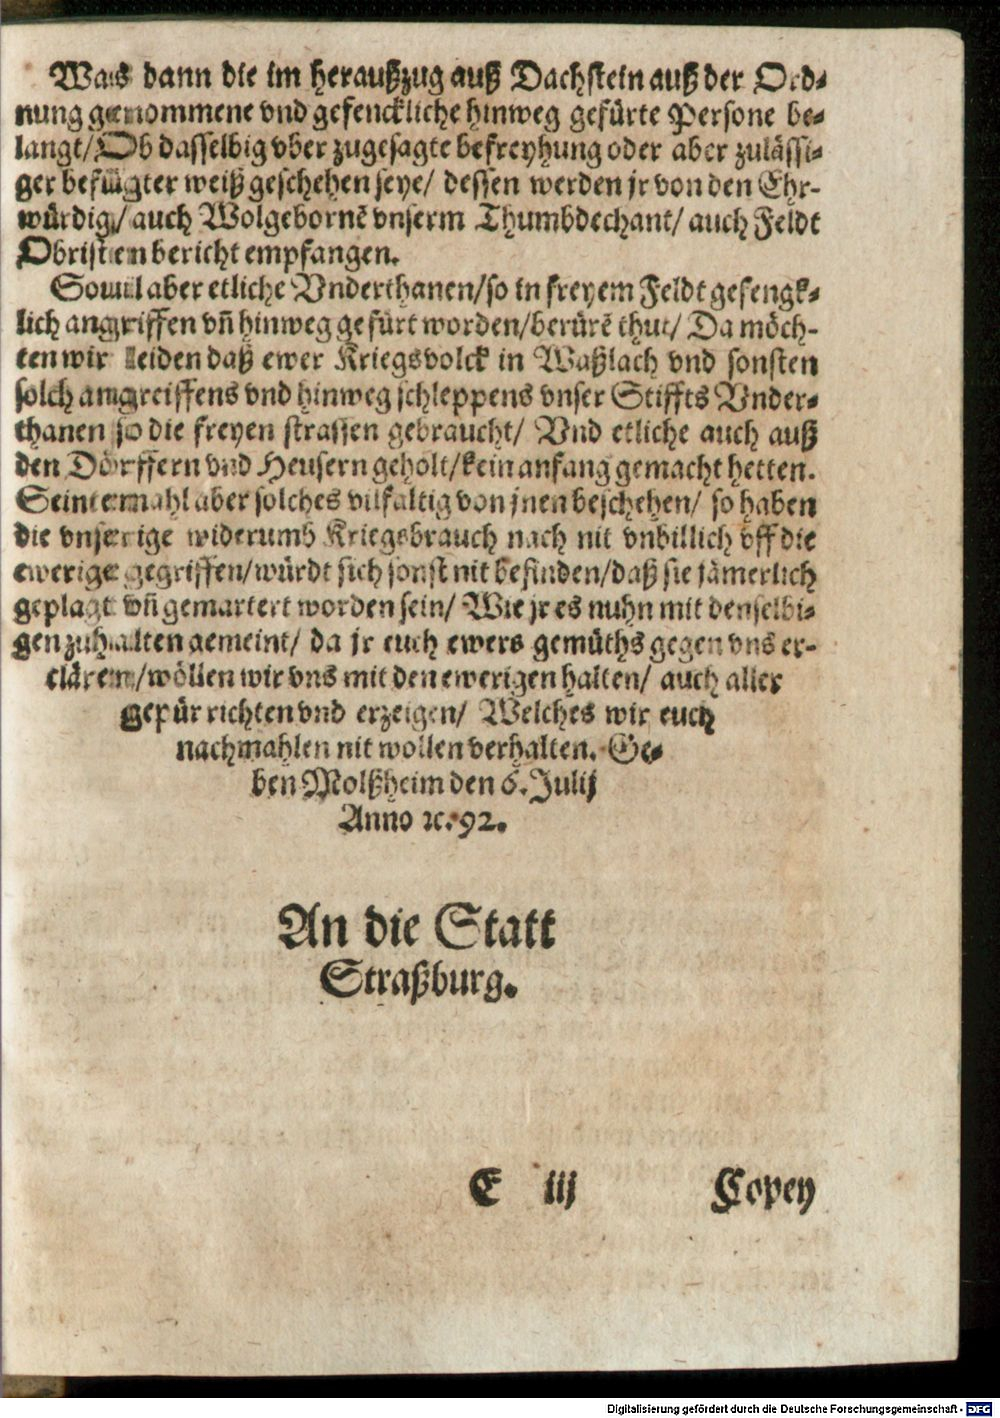 Was dann die im herauſzug auß Dachſtein auß der Ord-
nung genommene vnd gefenckliche hinweg gefürte Perſone be-
langt/ Ob daſſelbig vber zugeſagte befreyhung oder aber zuläſſi-
ger befůgter weiß geſchehen ſeye/ deſſen werden jr von den Ehr-
würdig/ auch Wolgebornē vnſerm Thumbdechant/ auch Feldt
Obriſten bericht empfangen.
Souil aber etliche Vnderthanen/ ſo in freyem Feldt gefengk-
lich angriffen vñ hinweg gefürt worden/ berürē thut/ Da möch-
ten wir leiden daß ewer Kriegsvolck in Waßlach vnd ſonſten
ſolch angreiffens vnd hinweg ſchleppens vnſer Stiffts Vnder-
thanen ſo die freyen ſtraſſen gebraucht/ Vnd etliche auch auß
den Dörffern vnd Heuſern geholt/ kein anfang gemacht hetten.
Seintemahl aber ſolches vilfaltig von jnen beſchehen/ ſo haben
die vnſerige widerumb Kriegsbrauch nach nit vnbillich vff die
ewerige gegriffen/ würdt ſich ſonſt nit befinden/ daß ſie jämerlich
geplagt vñ gemartert worden ſein/ Wie jr es nuhn mit denſelbi-
gen zuhalten gemeint/ da jr euch ewers gemüths gegen vns er-
clären/ wöllen wir vns mit den ewerigen halten/ auch aller
gepür richten vnd erzeigen/ Welches wir euch
nachmahlen nit wollen verhalten. Ge-
ben Molßheim den 6. Julij
Anno ꝛc. 92.
An die Statt
Straßburg.
E iij Copey
Digitalisierung gefördert durch die Deutsche Forschungsgemeinschaft - DFG